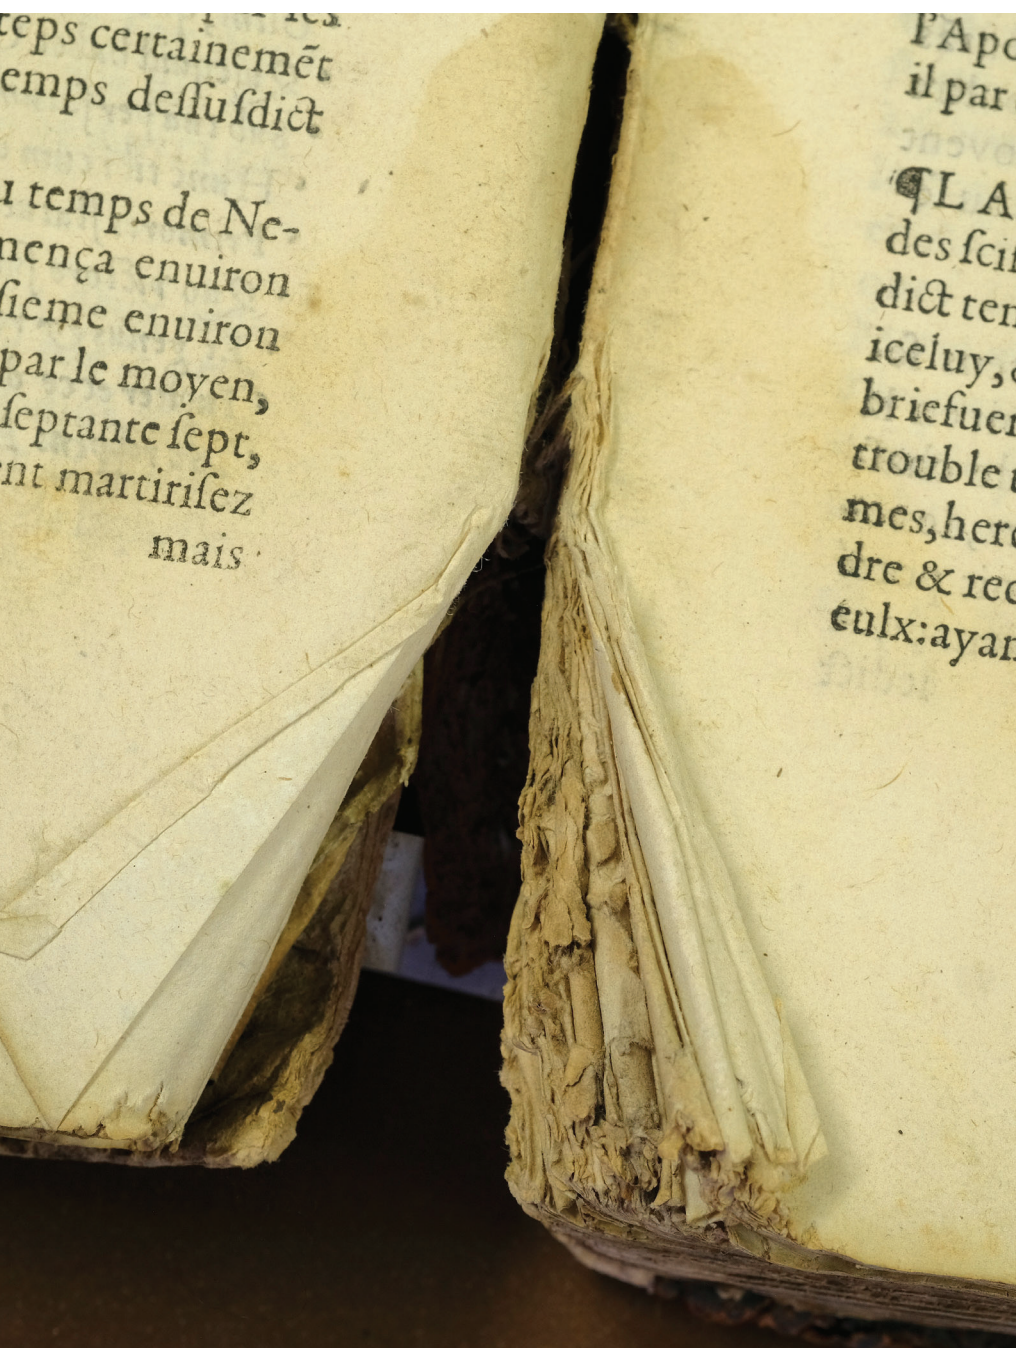 teps certainemẽt
emps deſſuſdict
u temps de Ne-
mença enuiron
ſieme enuiron
par le moyen,
ſeptante ſept,
ent martiriſez
mais
l'Apo
il par
¶ L A
des ſciſ
dict ten
iceluy,
briefuer
trouble
mes, here
dre & rec
eulx: ayan